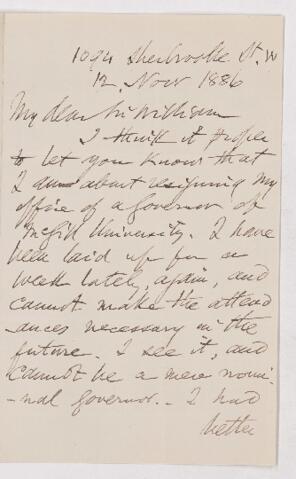 1094 Sherbrooke St. W
12. Novr 1886
My dear Sir William
I think it proper
to let you know that
I am about resigning my
office of a Governor of
McGill University. I have
been laid up for a
week lately, again, and
cannot make the attend
-ances necessary in the
future. I see it, and
cannot be a mere nomi-
-nal Governor. - I had
better